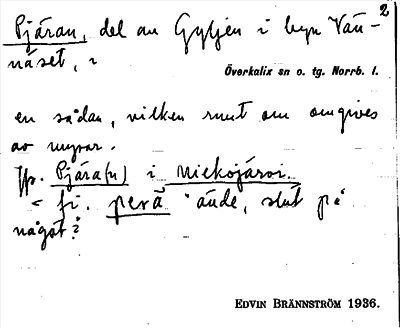 2
Pjäran, del av Gyljen i byn Vän-
näset, i
Överkalix sn o. tg. Norrb. l.
en sådan, vilken runt om omgives
av myrar.
Jfr. Pjära(n) i Niekojärvi.
< fi. perä 'ände, slut på
något'?
EDVIN BRÄNNSTRÖM 1936.